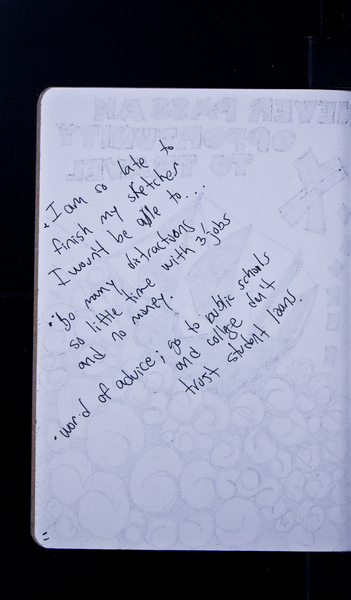 NEVER PASS AN
OPPORTUNITY
TO TRAVEL
• I am so late to
finish my sketches
I won't be able to...
• So many distractions
so little time with 3 jobs
and no money.
• word of advice; go to public schools
and college don't
trust student loans.